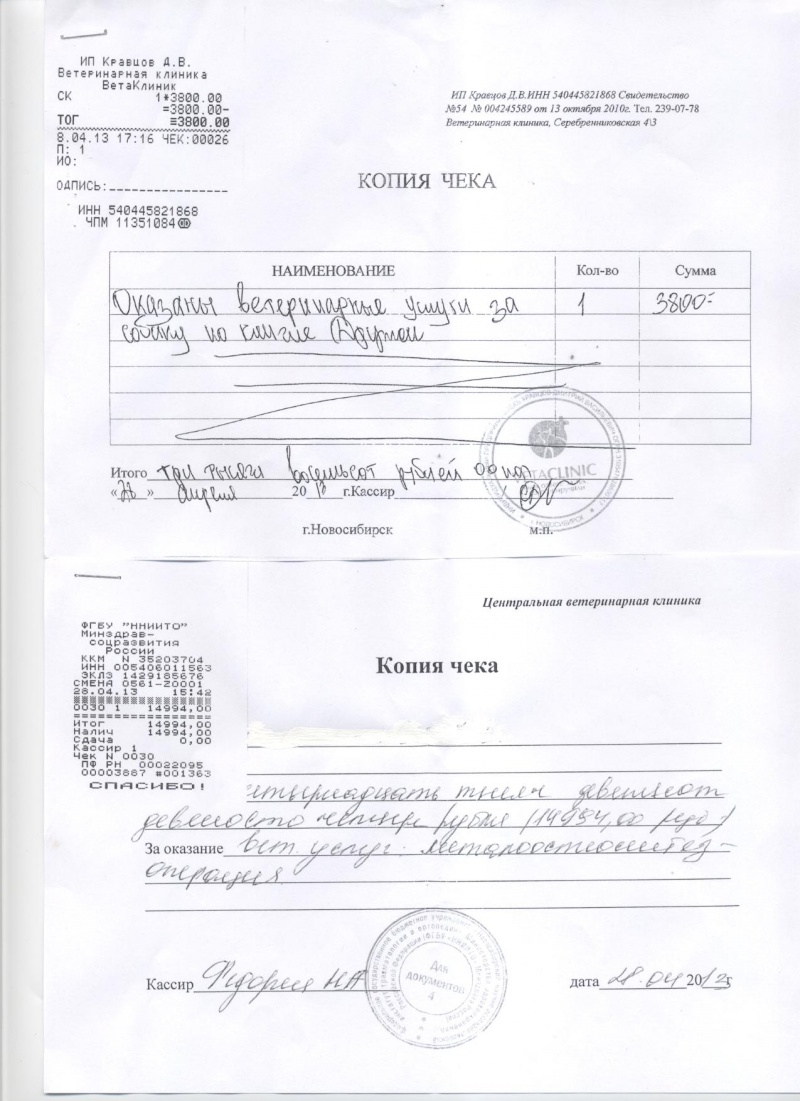 ИП Кравцов Д.В.
Ветеринарная клиника
ВетаКлиник
СК 1*3800.00
=3800.00-
ТОГ ≡3800.00
8.04.13 17:16 ЧЕК:00026
П: 1
ИО:
ОДПИСЬ:
ИНН 540445821868
ЧПМ 11351084
ИП Кравцов Д.В.ИНН 540445821868 Свидетельство
№54 № 004245589 от 13 октября 2010г. Тел. 239-07-78
Ветеринарная клиника, Серебренниковская 4\3
КОПИЯ ЧЕКА
НАИМЕНОВАНИЕ Кол-во Сумма
Оказаны ветеринарные услуги за 1 3800-
собаку по кличке
Итого три тысячи восемьсот рублей 00 коп
« » апреля 20 г.Кассир
г.Новосибирск м.п.
Центральная ветеринарная клиника
ФГБУ "ННИИТО"
Минздрав-
соцразвития
России
ККМ N 35203704
ИНН 005406011563
ЭКЛЗ 1429185676
СМЕНА 0561-Z0001
28.04.13 15:42
0030 1 14994,00
Итог 14994,00
Налич 14994,00
Сдача 0,00
Кассир 1
Чек N 0030
ПФ РН 00022095
00003887 #001363
СПАСИБО!
Копия чека
етырнадцать тысяч девятьсот
девяносто четыре рубля (14994,00 руб)
За оказание вет. услуг. металоостеосинтез-
операция
Для
документов
4
Кассир дата 28.04 2013г